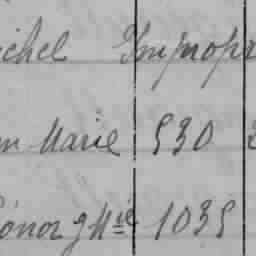 ichel Impropr
n Marie 530
éonor g Mie 1035